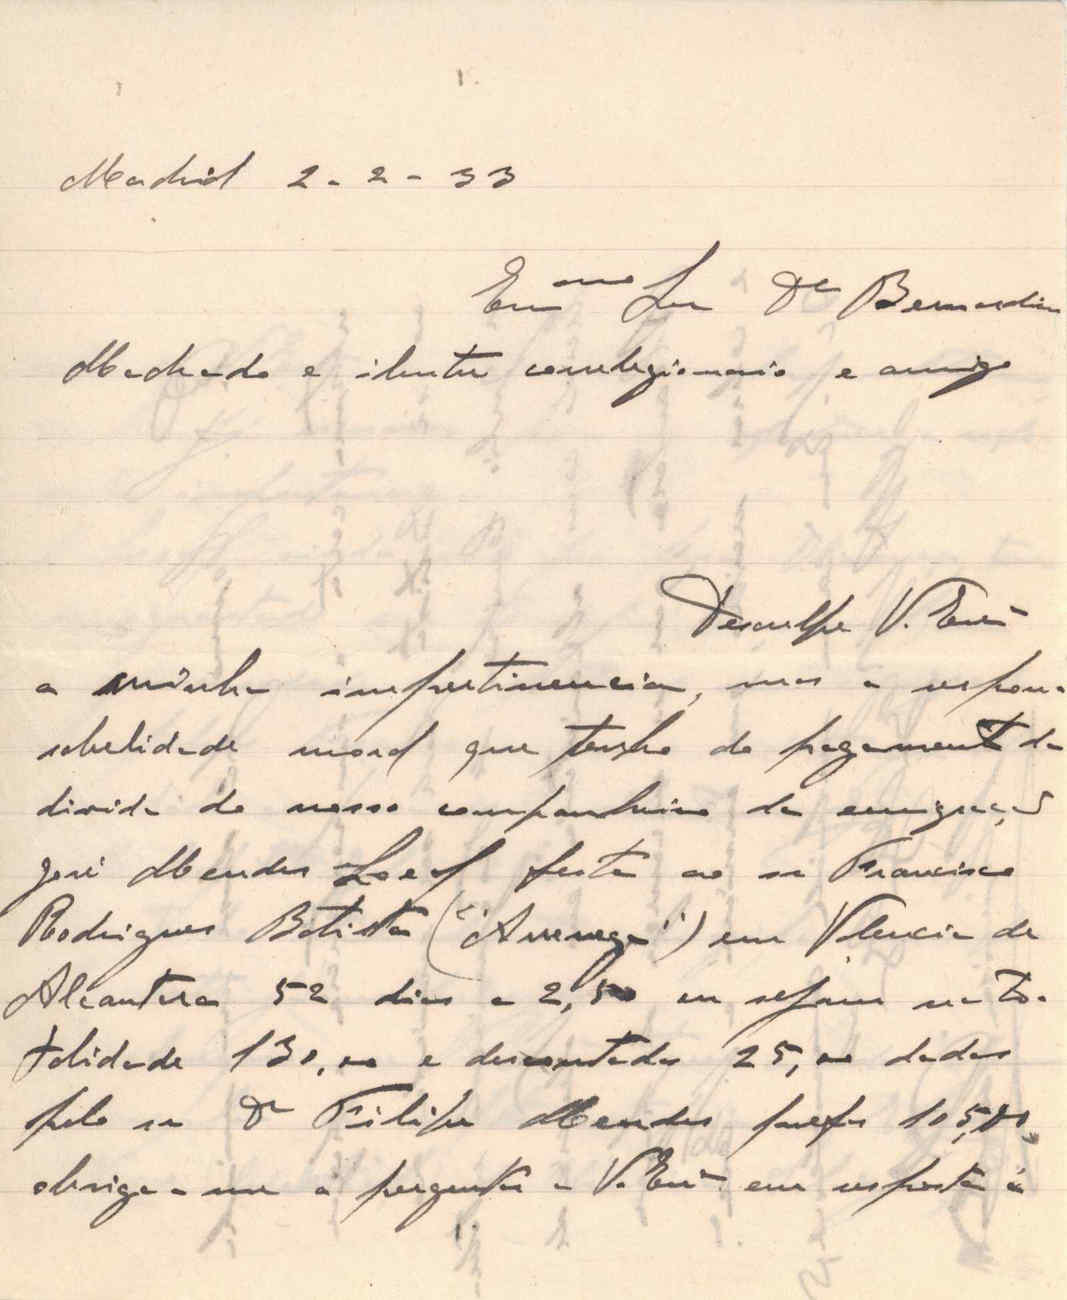 Madrid 2-2-33
Exmo Snr Dr Bernardino
Machado e ilustre correlegionario e amigo
Desculpe V. Exª
a minha impertinencia, mas a respon-
sabelidade moral que tenho do pagamento da
divida do nosso companheiro da emigração
José Mendes Leal feita ao sr Francisco
Rodrigues Batista ("Arrenega") em Valencia de
Alcantera 52 dias a 2,50 ou sejam na to-
talidade 130,00 e descontadas 25,00 dadas
pelo sr Dr Filipe Mendes prefaz 105,00
obriga-me a preguntar a V. Exª em resposta á